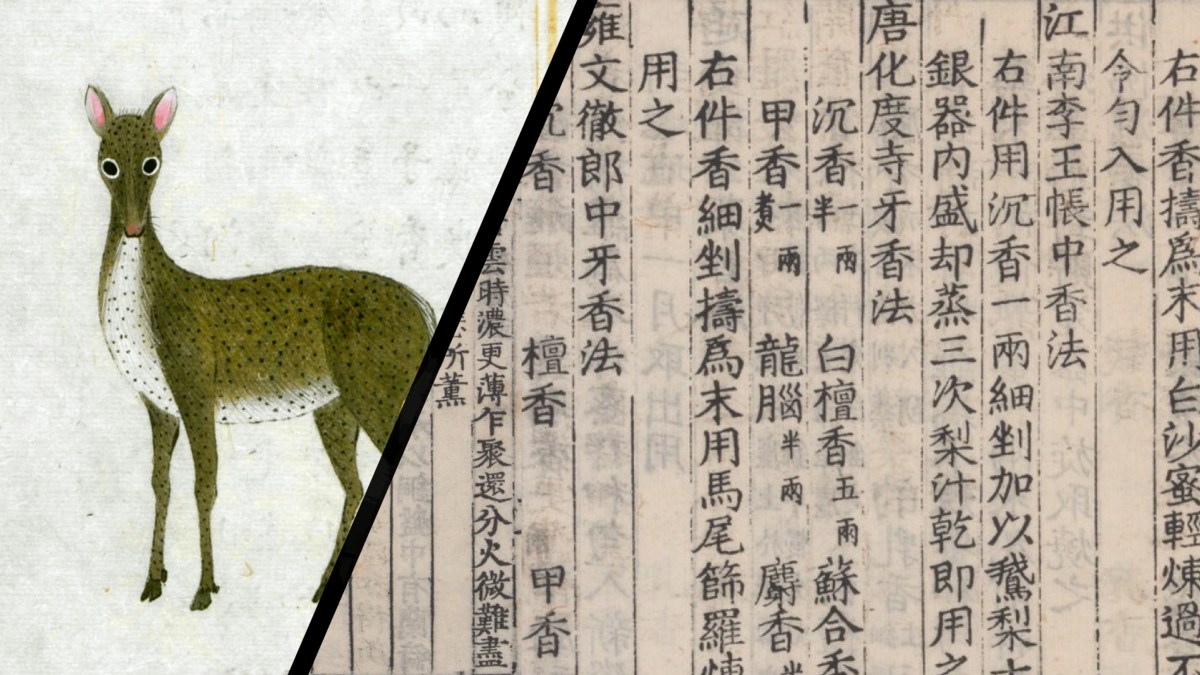 右件香擣爲末用白沙蜜輕煉過不
令勻入用之
江南李王帳中香法
右件用沉香一兩細剉加以鵝梨十
銀器内盛却蒸三次梨汁乾即用之
唐化度寺牙香法
沉香一兩半 白檀香五兩 蘇合香
甲香一兩煮 龍腦半兩 麝香半
右件香細剉擣爲末用馬尾篩羅煉
用之
雍文徹郎中牙香法
沉香 檀香 甲香
雲時濃更薄乍聚還分火微難盡
所薰